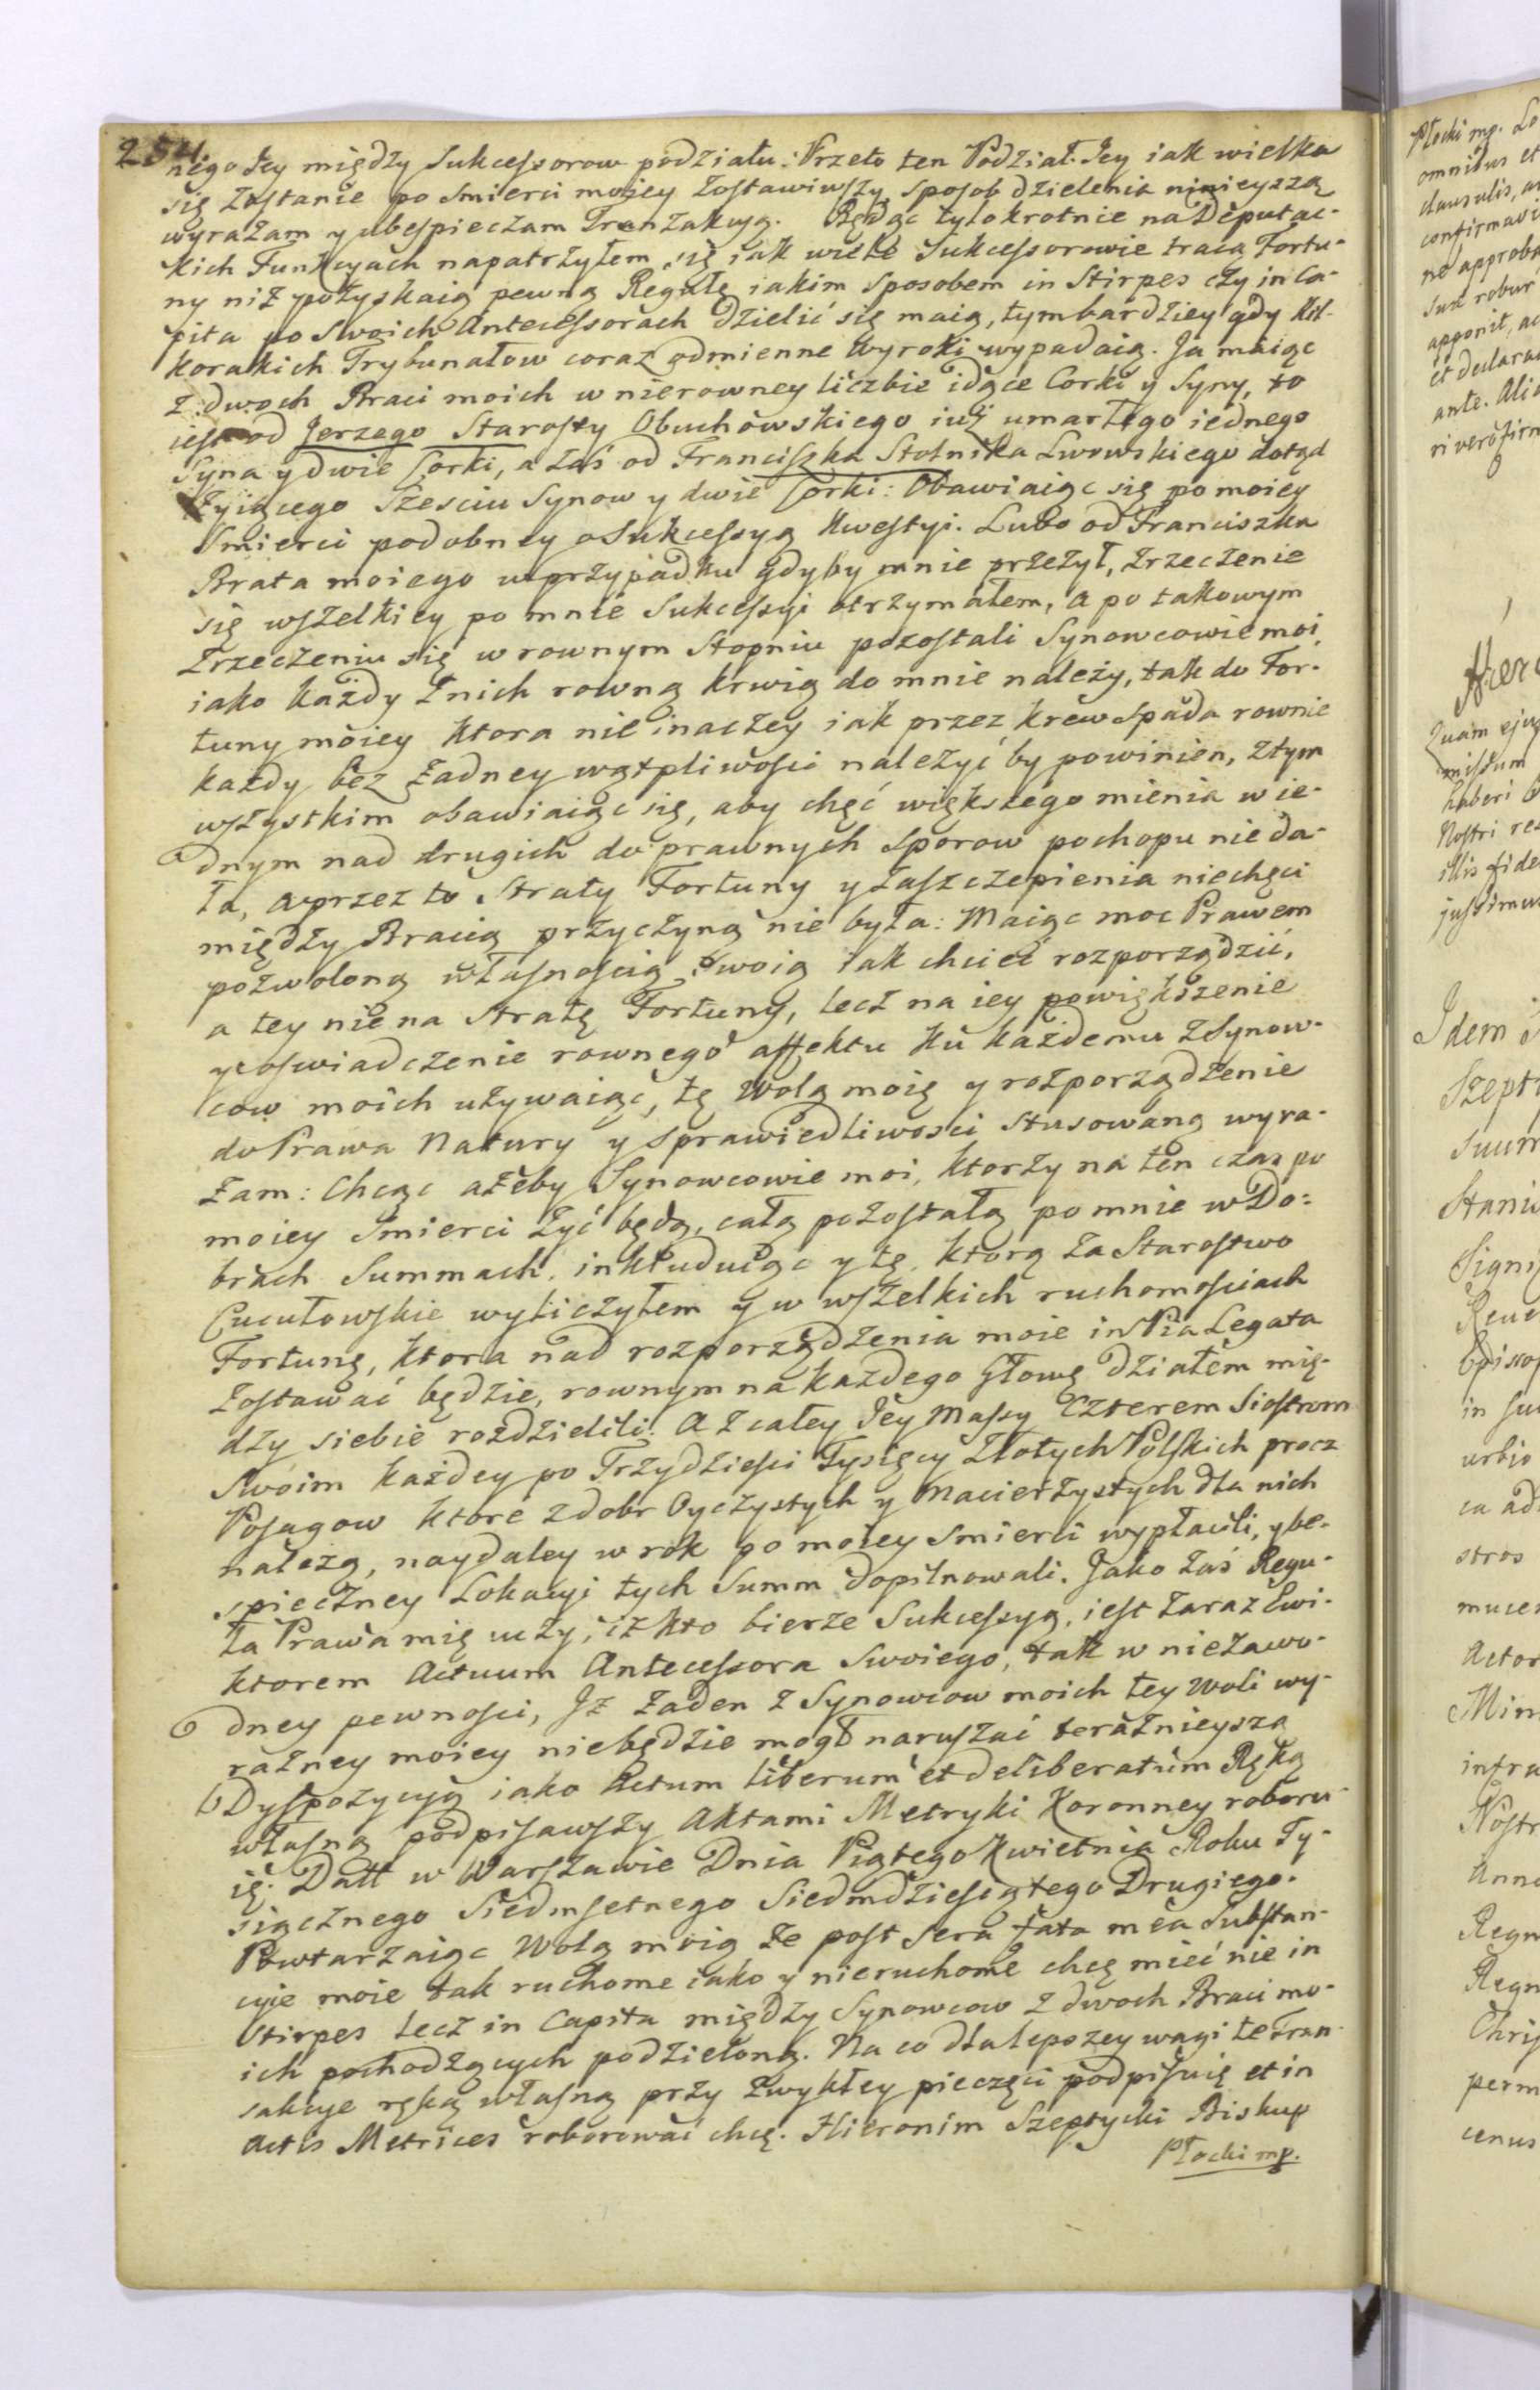 254.
niego Jey między Sukcessorow podziału: Przeto ten Podział Jey iak wielka
się zostanie po Smierci moiey zostawiwszy sposob dzielenia ninieyszą
wyrażam y ubespieczam Tranzakcyą. Będąc tylokrotnie na Deputac-
kich Funkcyach napatrzyłem się iak wiele Sukcessorowie tracą Fortu-
ny niż pozyskaią pewną Regułę iakim sposobem in Stirpes czy in Ca-
pita po Swoich Antecessorach dzielić się maią, tym bardziey gdy kil-
korakich Trybunałow coraz odmienne wyroki wypadaią. Ja maiąc
z dwoch Braci moich w nierowney liczbie idące Corki y Syny, to
iest od Jerzego Starosty Obuchowskiego iuż umarłego iednego
Syna y dwie Corki, a zaś od Franciszka Stolnika Lwowskiego dotąd
żyiącego Sześciu Synow y dwie Corki: Obawiaiąc się po moiey
Smierci podobney o Sukcessyą kwestyi. Lubo od Franciszka
Brata moiego w przypadku gdyby mnie przeżył, zrzeczenie
się wszelkiey po mnie Sukcessyi otrzymałem, a po takowym
zrzeczeniu się w rownym Stopniu pozostali Synowcowie moi
iako każdy z nich rowną krwią do mnie należy, tak do For-
tuny moiey ktora nie inaczey iak przez krew spada rownie
każdy bez żadney wątpliwości należyć by powinien, z tym
wszystkim obawiaiąc się, aby chęć większego mienia w ie-
dnym nad drugich do prawnych sporow pochopu nie da-
ła, a przez to Straty Fortuny y zaszczepienia niechęci
między Bracią przyczyną nie była: Maiąc moc Prawem
pozwoloną własnością swoią iak chcieć rozporządzić,
a tey nie na stratę Fortuny, lecz na iey powiększenie
y oświadczenie rownego affektu ku każdemu z Synow-
cow moich używaiąc, tę wolą moię y rozporządzenie
do Prawa Natury y sprawiedliwości stusowaną wyra-
żam: Chcąc ażeby Synowcowie moi, ktorzy na ten czas po
moiey Smierci żyć będą, całą pozostałą po mnie w Do-
brach Summach, inkluduiąc y tę, ktorą za Starostwo
Cucułowskie wyliczyłem y w wszelkich ruchomościach
Fortunę, ktora nad rozporządzenia moie in Pia Legata
zostawać będzie, rownym na każdego głowę działem mię-
dzy siebie rozdzielili. A z całey Jey Massy Czterem Siostrom
swoim każdey po Trzydzieści Tysięcy Złotych Polskich procz
Posagow ktore z dobr Oyczystych y Macierzystych dla nich
należą, naydaley w rok po moiey smierci wypłacili, y be-
spieczney Lokacyi tych Summ dopilnowali. Jako zaś Regu-
ła Prawa mię uczy, iż kto bierze Sukcessyą, iest zaraz Ewi-
ktorem Actuum Antecessora Swoiego, tak w niezawo-
dney pewności, Iż żaden z Synowcow moich tey woli wy-
raźney moiey niebędzie mogł naruszać teraźnieyszą
Dyspozycyą iako Actum liberum et deliberatum Ręką
własną podpisawszy Aktami Metryki Koronney roboru-
ię. Datt w Warszawie Dnia Piątego Kwietnia Roku Ty-
siącznego Siedmsetnego Siedmdziesiątego Drugiego.
Powtarzaiąc Wolą moią że post sera fata mea Substan-
cyie moie tak ruchome iako y nieruchome chcę mieć nie in
Stirpes lecz in Capita między Synowcow z dwoch Braci mo-
ich pochodzących podzieloną. Na co dla lepszey wagi te Tran-
sakcye ręką własną przy zwykłey pieczęci podpisuię et in
Actis Metrices roborować chcę. Hieronim Szeptycki Biskup
Płocki mp.
Płocki mp.
omnibus et
clausulis,
ne approb
sua robur
apponit, ac
et declara
ante. Ali
Quam
missum
haberi
Nostri
illis fide
Idem
Szept
Suum
Stani
Signi
Episcop
in su
urbjo
ca ad
stros
Actor
infra
Nostr
Anno
Regn
Regn
Chris
perm
cenus